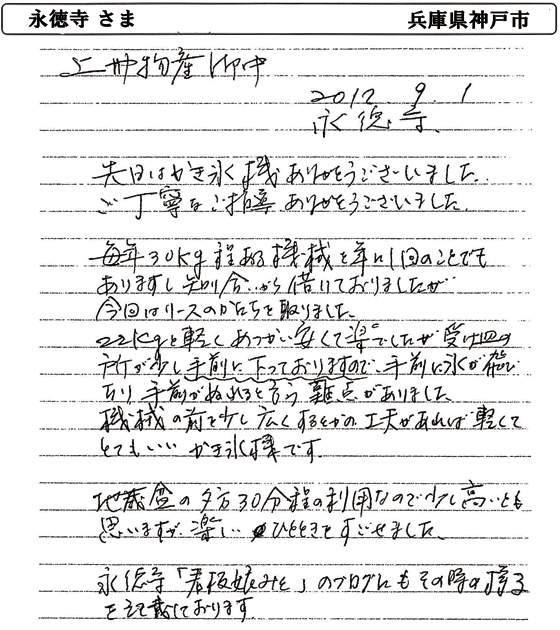 永徳寺 さま 兵庫県神戸市
上州物産御中
2012 9. 1
永徳寺.
先日はかき氷機ありがとうございました.
ご丁寧なご指導、ありがとうございました.
毎年30kg程ある機械を年に1回のことでも
ありますし知り合いから借りておりましたが
今回はリースのかたちを取りました。
22kgと軽くあつかい安くて楽でしたが受け皿の
所が少し手前に下っておりますので、手前に氷が飛び
たり 手前がぬれると言う難点がありました。
機械の前を少し広くするとかの工夫があれば軽くて
とてもいい かき氷機です.
地蔵盆の夕方30分程の利用なので少し高いとも
思いますが 楽しい ひとときをすごせました.
永徳寺「看板娘みと」のブログにもその時の様子
を記載しております